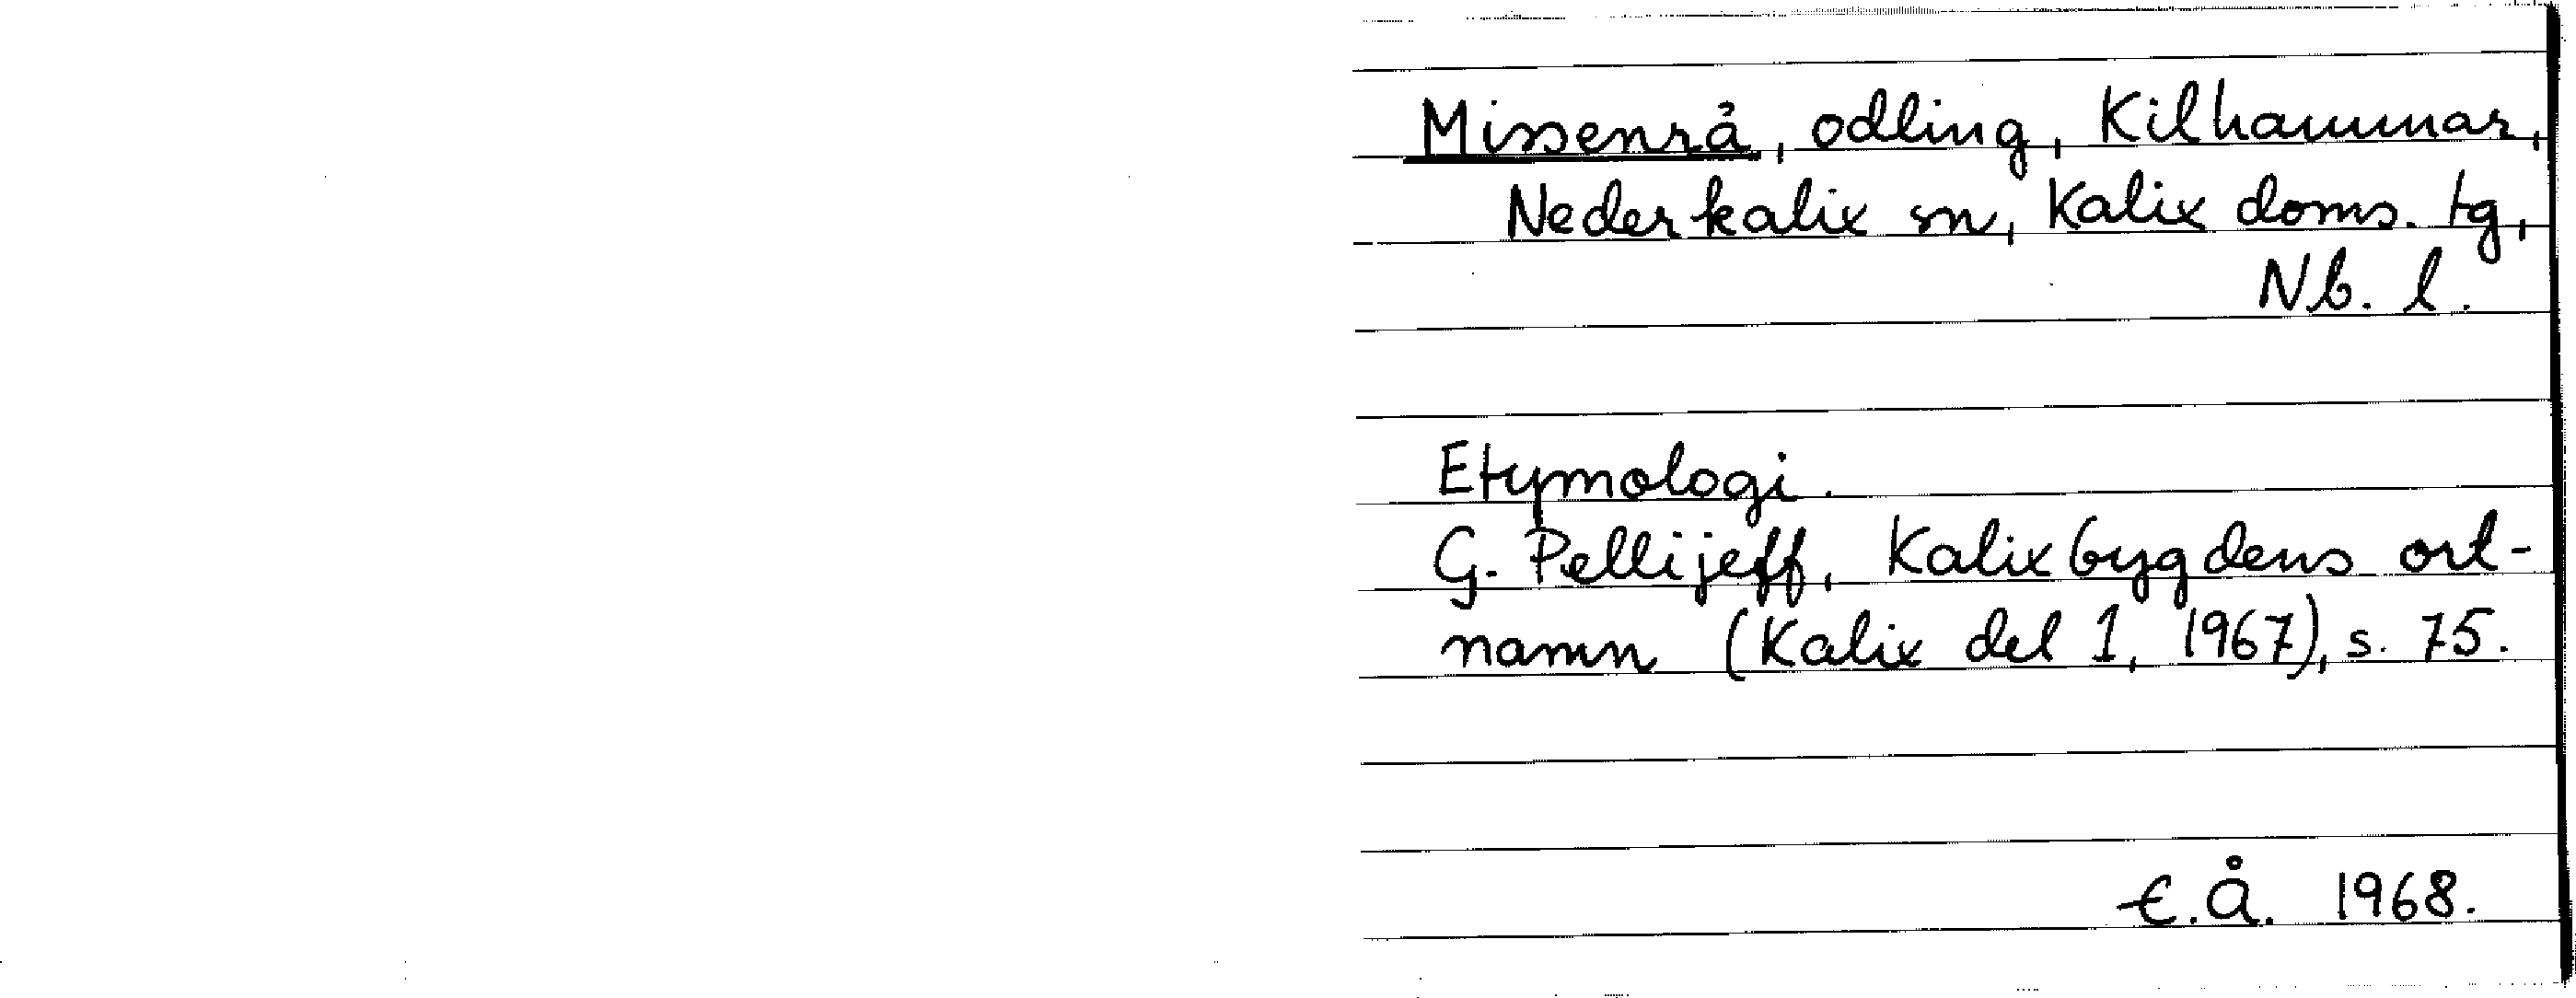 Missenrå, odling, Kilhammar,
Nederkalix sn, Kalix doms. tg,
Nb. l.
Etymologi.
G. Pellijeff, Kalixbygdens ort-
namn (Kalix del 1, 1967), s. 75.
E.Å. 1968.